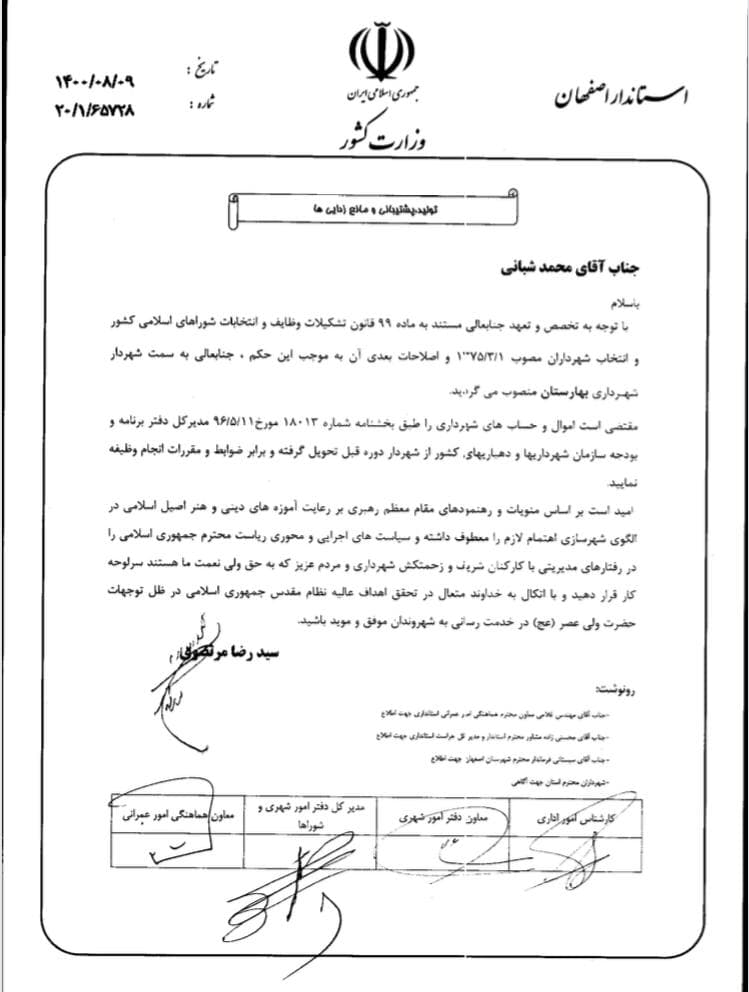 استاندار اصفهان
جمهوری اسلامی ایران
وزارت کشور
تاریخ :
۱۴۰۰/۰۸/۰۹
شماره :
۲۰/۱/۶۵۷۲۸
تولید،پشتیبانی و مانع زدایی ها
جناب آقای محمد شبانی
باسلام
با توجه به تخصص و تعهد جنابعالی مستند به ماده ۹۹ قانون تشکیلات وظایف و انتخابات شوراهای اسلامی کشور
و انتخاب شهرداران مصوب ۱۳۷۵/۳/۱ و اصلاحات بعدی آن به موجب این حکم ، جنابعالی به سمت شهردار
شهرداری بهارستان منصوب می گردید.
مقتضی است اموال و حساب های شهرداری را طبق بخشنامه شماره ۱۸۰۱۳ مورخ۹۶/۵/۱۱ مدیرکل دفتر برنامه و
بودجه سازمان شهرداریها و دهیاریهای کشور از شهردار دوره قبل تحویل گرفته و برابر ضوابط و مقررات انجام وظیفه
نمایید.
امید است بر اساس منویات و رهنمودهای مقام معظم رهبری بر رعایت آموزه های دینی و هنر اصیل اسلامی در
الگوی شهرسازی اهتمام لازم را معطوف داشته و سیاست های اجرایی و محوری ریاست محترم جمهوری اسلامی را
در رفتارهای مدیریتی با کارکنان شریف و زحمتکش شهرداری و مردم عزیز که به حق ولی نعمت ما هستند سرلوحه
کار قرار دهید و با اتکال به خداوند متعال در تحقق اهداف عالیه نظام مقدس جمهوری اسلامی در ظل توجهات
حضرت ولی عصر (عج) در خدمت رسانی به شهروندان موفق و موید باشید.
سید رضا مرتضوی
رونوشت:
-جناب آقای مهندس غلامی معاون محترم هماهنگی امور عمرانی استانداری جهت اطلاع
-جناب آقای محسنی زاده مشاور محترم استاندار و مدیر کل حراست استانداری جهت اطلاع
-جناب آقای سیستانی فرماندار محترم شهرستان اصفهان جهت اطلاع
-شهرداران محترم استان جهت آگاهی
کارشناس امور اداری
معاون دفتر امور شهری
مدیر کل دفتر امور شهری و
شوراها
معاون هماهنگی امور عمرانی